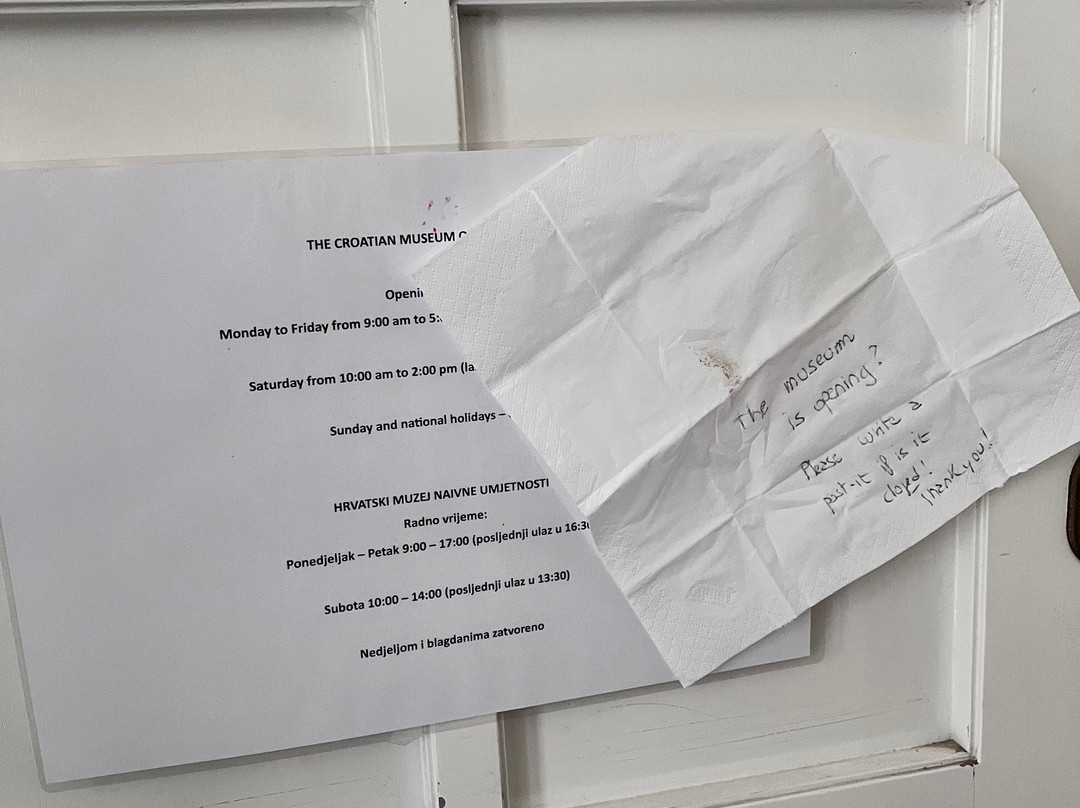 THE CROATIAN MUSEUM O
Openin
Monday to Friday from 9:00 am to 5:
Saturday from 10:00 am to 2:00 pm (la
Sunday and national holidays –
HRVATSKI MUZEJ NAIVNE UMJETNOSTI
Radno vrijeme:
Ponedjeljak – Petak 9:00 – 17:00 (posljednji ulaz u 16:30
Subota 10:00 – 14:00 (posljednji ulaz u 13:30)
Nedjeljom i blagdanima zatvoreno
The museum
is opening?
Please write a
post-it if is it
closed!
Thank you!